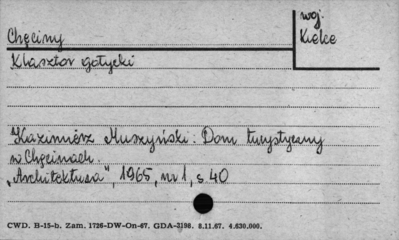 Chęciny
woj.
Kielce
Klasztor gotycki
Kazimierz Muszyński: Dom turystyczny
w Chęcinach.
„Architektura", 1965, nr 1, s. 40
CWD. B-15-b. Zam. 1726-DW-On-67. GDA-3198. 8.11.67. 4.630.000.